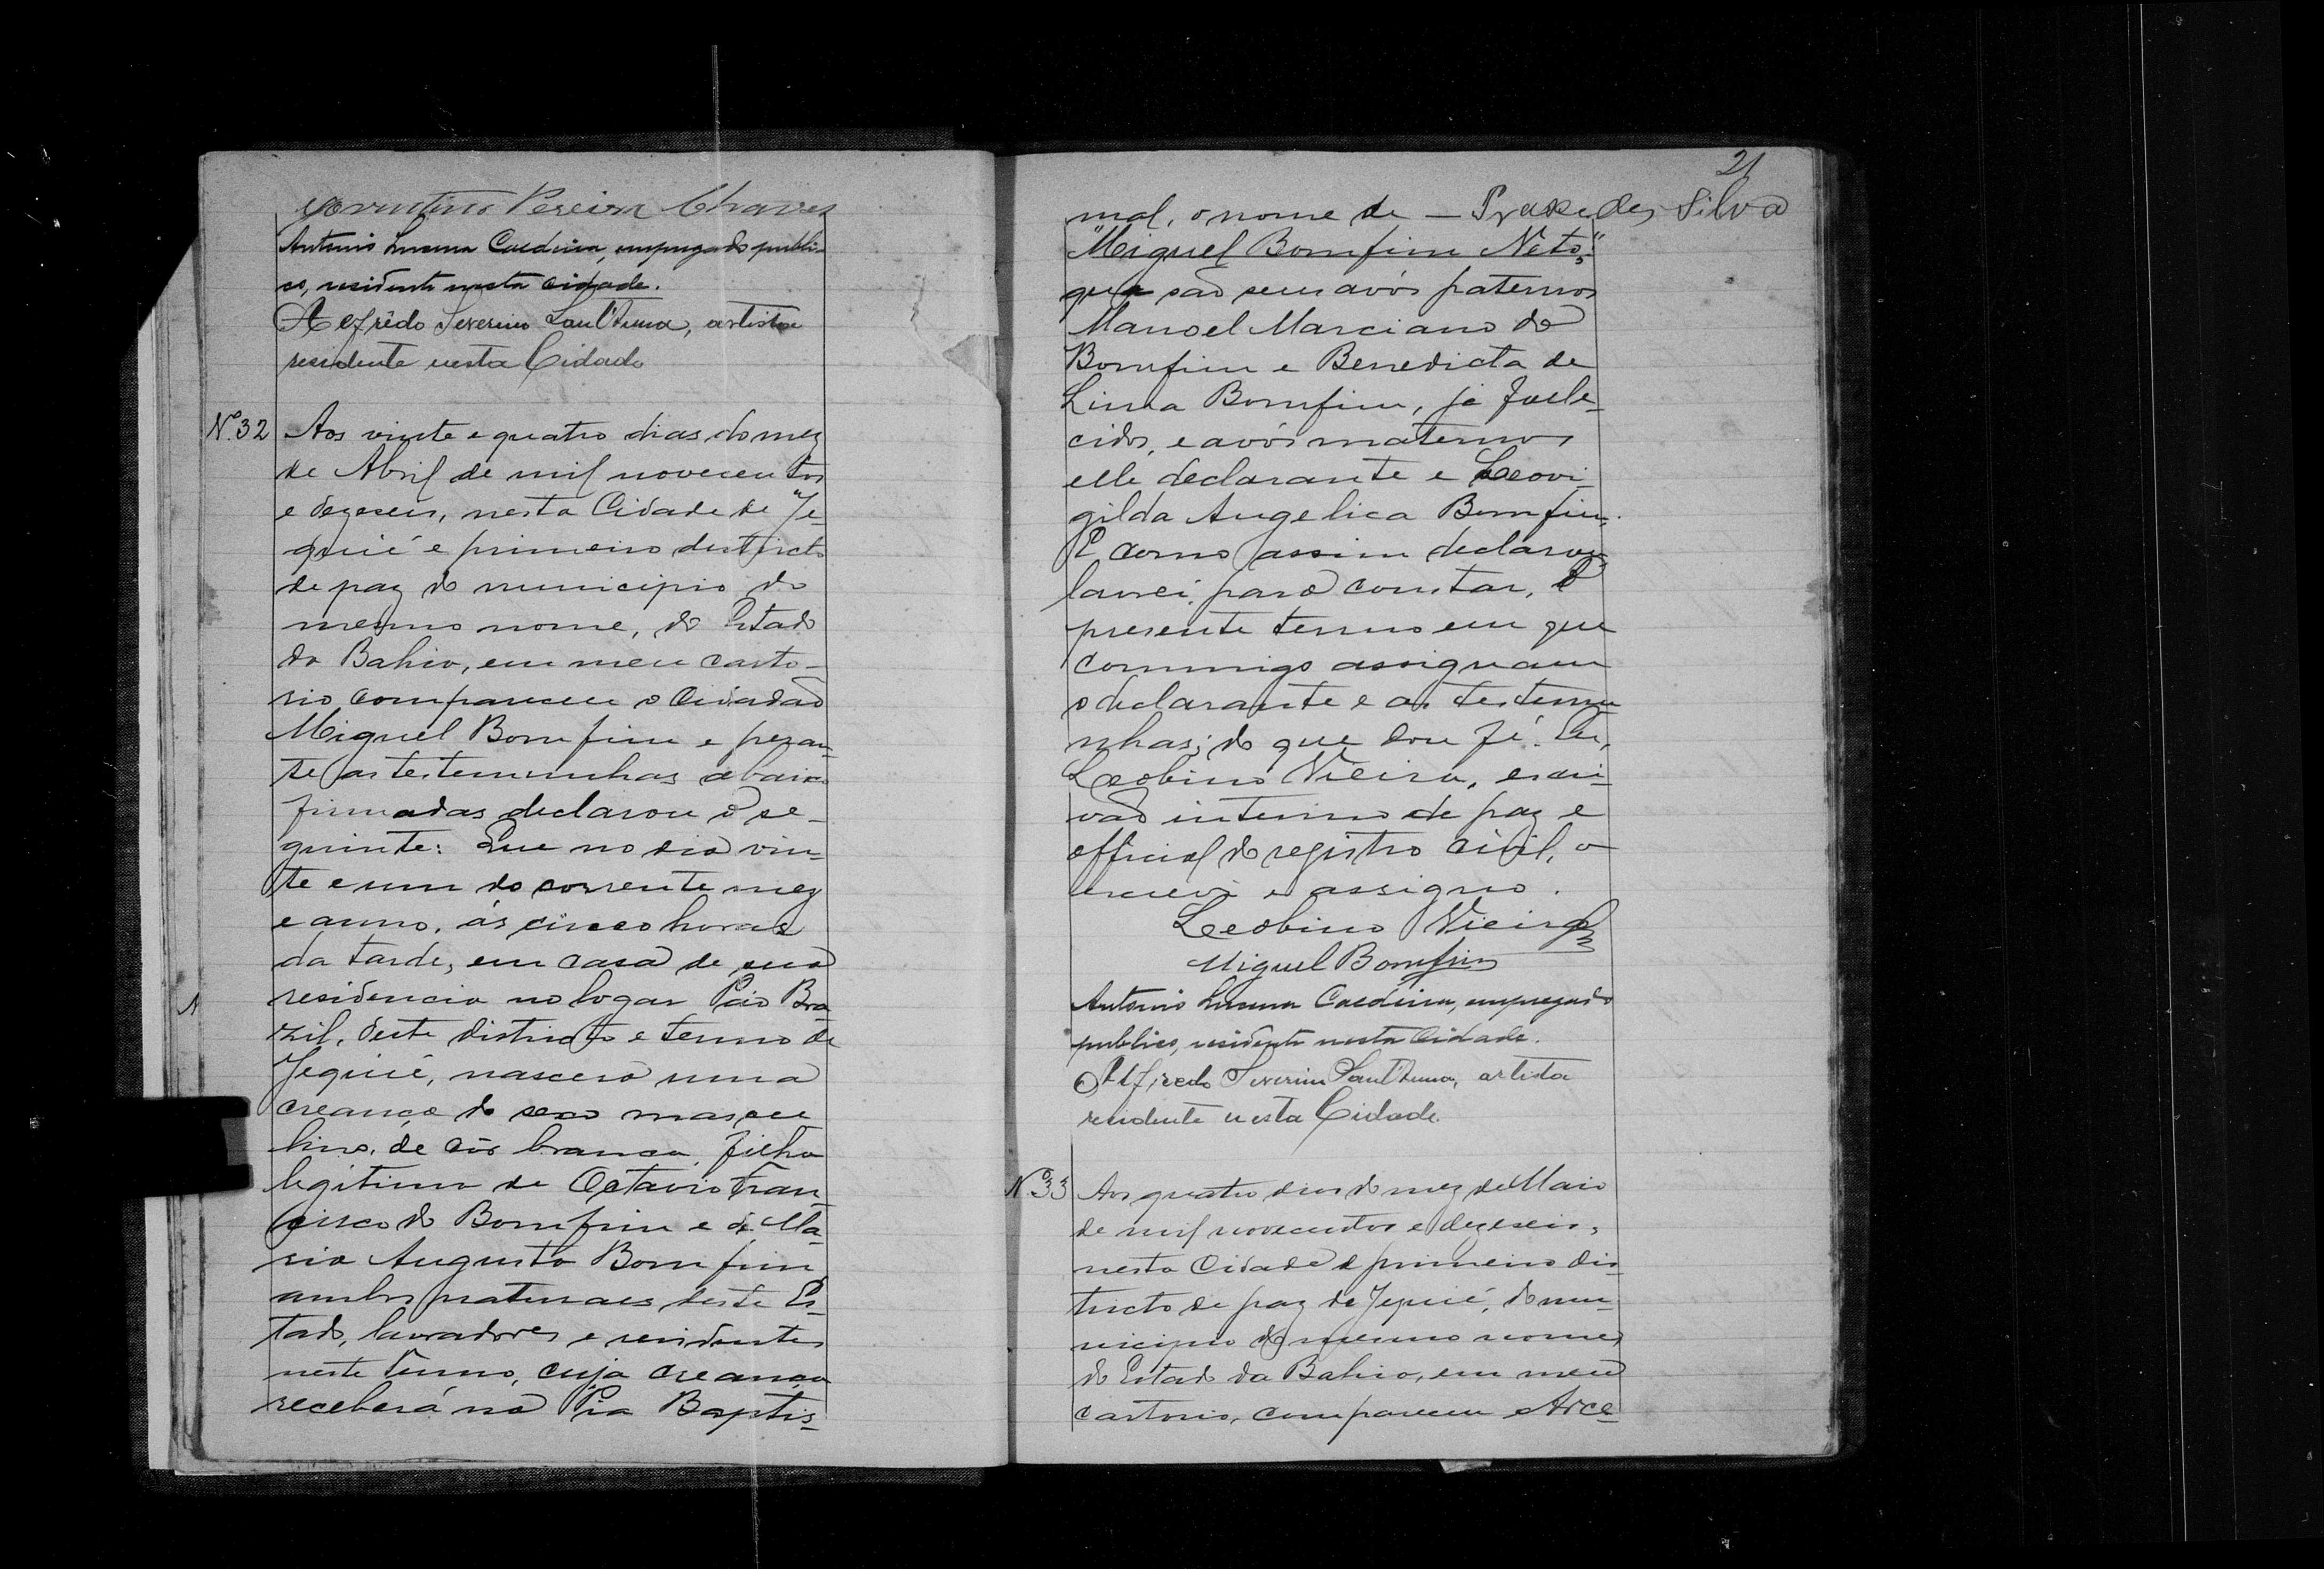 Pereira Chaves
Antonio Lucena Caldeira, empregado publi-
co, residente nesta cidade.
Alfrêdo Severino Sant'Anna, artista
residente nesta Cidade
Nº 32 Aos vinte e quatro dias do mez
de Abril de mil novecentos
e dezeseis, nesta Cidade de Je-
quié e primeiro destricto
de paz do municipio do
mesmo nome, do Estado
da Bahia, em meu carto-
rio compareceu o Cidadão
Miguel Bomfim e peran-
te as testemunhas abaixo
firmadas declarou o se-
guinte: Que no dia vin-
te e um do corrente mez
e anno, ás cinco horas
da tarde, em casa de sua
residencia no logar Páo Bra
zil, deste districto e termo de
Jequié, nascera uma
creança do sexo mascu
lino, de côr branca, filho
legitimo de Octavio Fran-
cisco do Bomfim e de Ma-
ria Augusta Bomfim
ambos naturaes deste Es-
tado, lavradores e residentes
neste termo, cuja creança
receberá na Pia Baptis-
21
mal, o nome de — Praxedes Silva
"Miguel Bomfim Neto";
que são seus avós paternos
Manoel Marciano do
Bomfim e Benedicta de
Lima Bomfim, já falle-
cidos, e avós maternos
elle declarante e Leovi-
gilda Angelica Bomfim.
E como assim declarou,
lavrei, para constar, o
presente termo em que
commigo assignam
o declarante e as testemu
nhas; do que dou fé. Eu,
Leobino Vieira, escri-
vão interino de paz e
official do registro civil, o
escrevi e assigno.
Leobino Vieira
Miguel Bomfim
Antonio Lucena Caldeira, empregado
publico, residente nesta Cidade.
Alfredo Severino Sant'Anna, artista
residente nesta Cidade.
Nº 33 Aos quatro dias do mez de Maio
de mil novecentos e dezeseis,
nesta Cidade e primeiro dis-
tricto de paz de Jequié, do mu-
nicipio do mesmo nome,
do Estado da Bahia, em meu
cartorio, compareceu Arce-